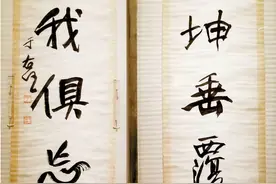 坤垂覆
我俱忘
于右任